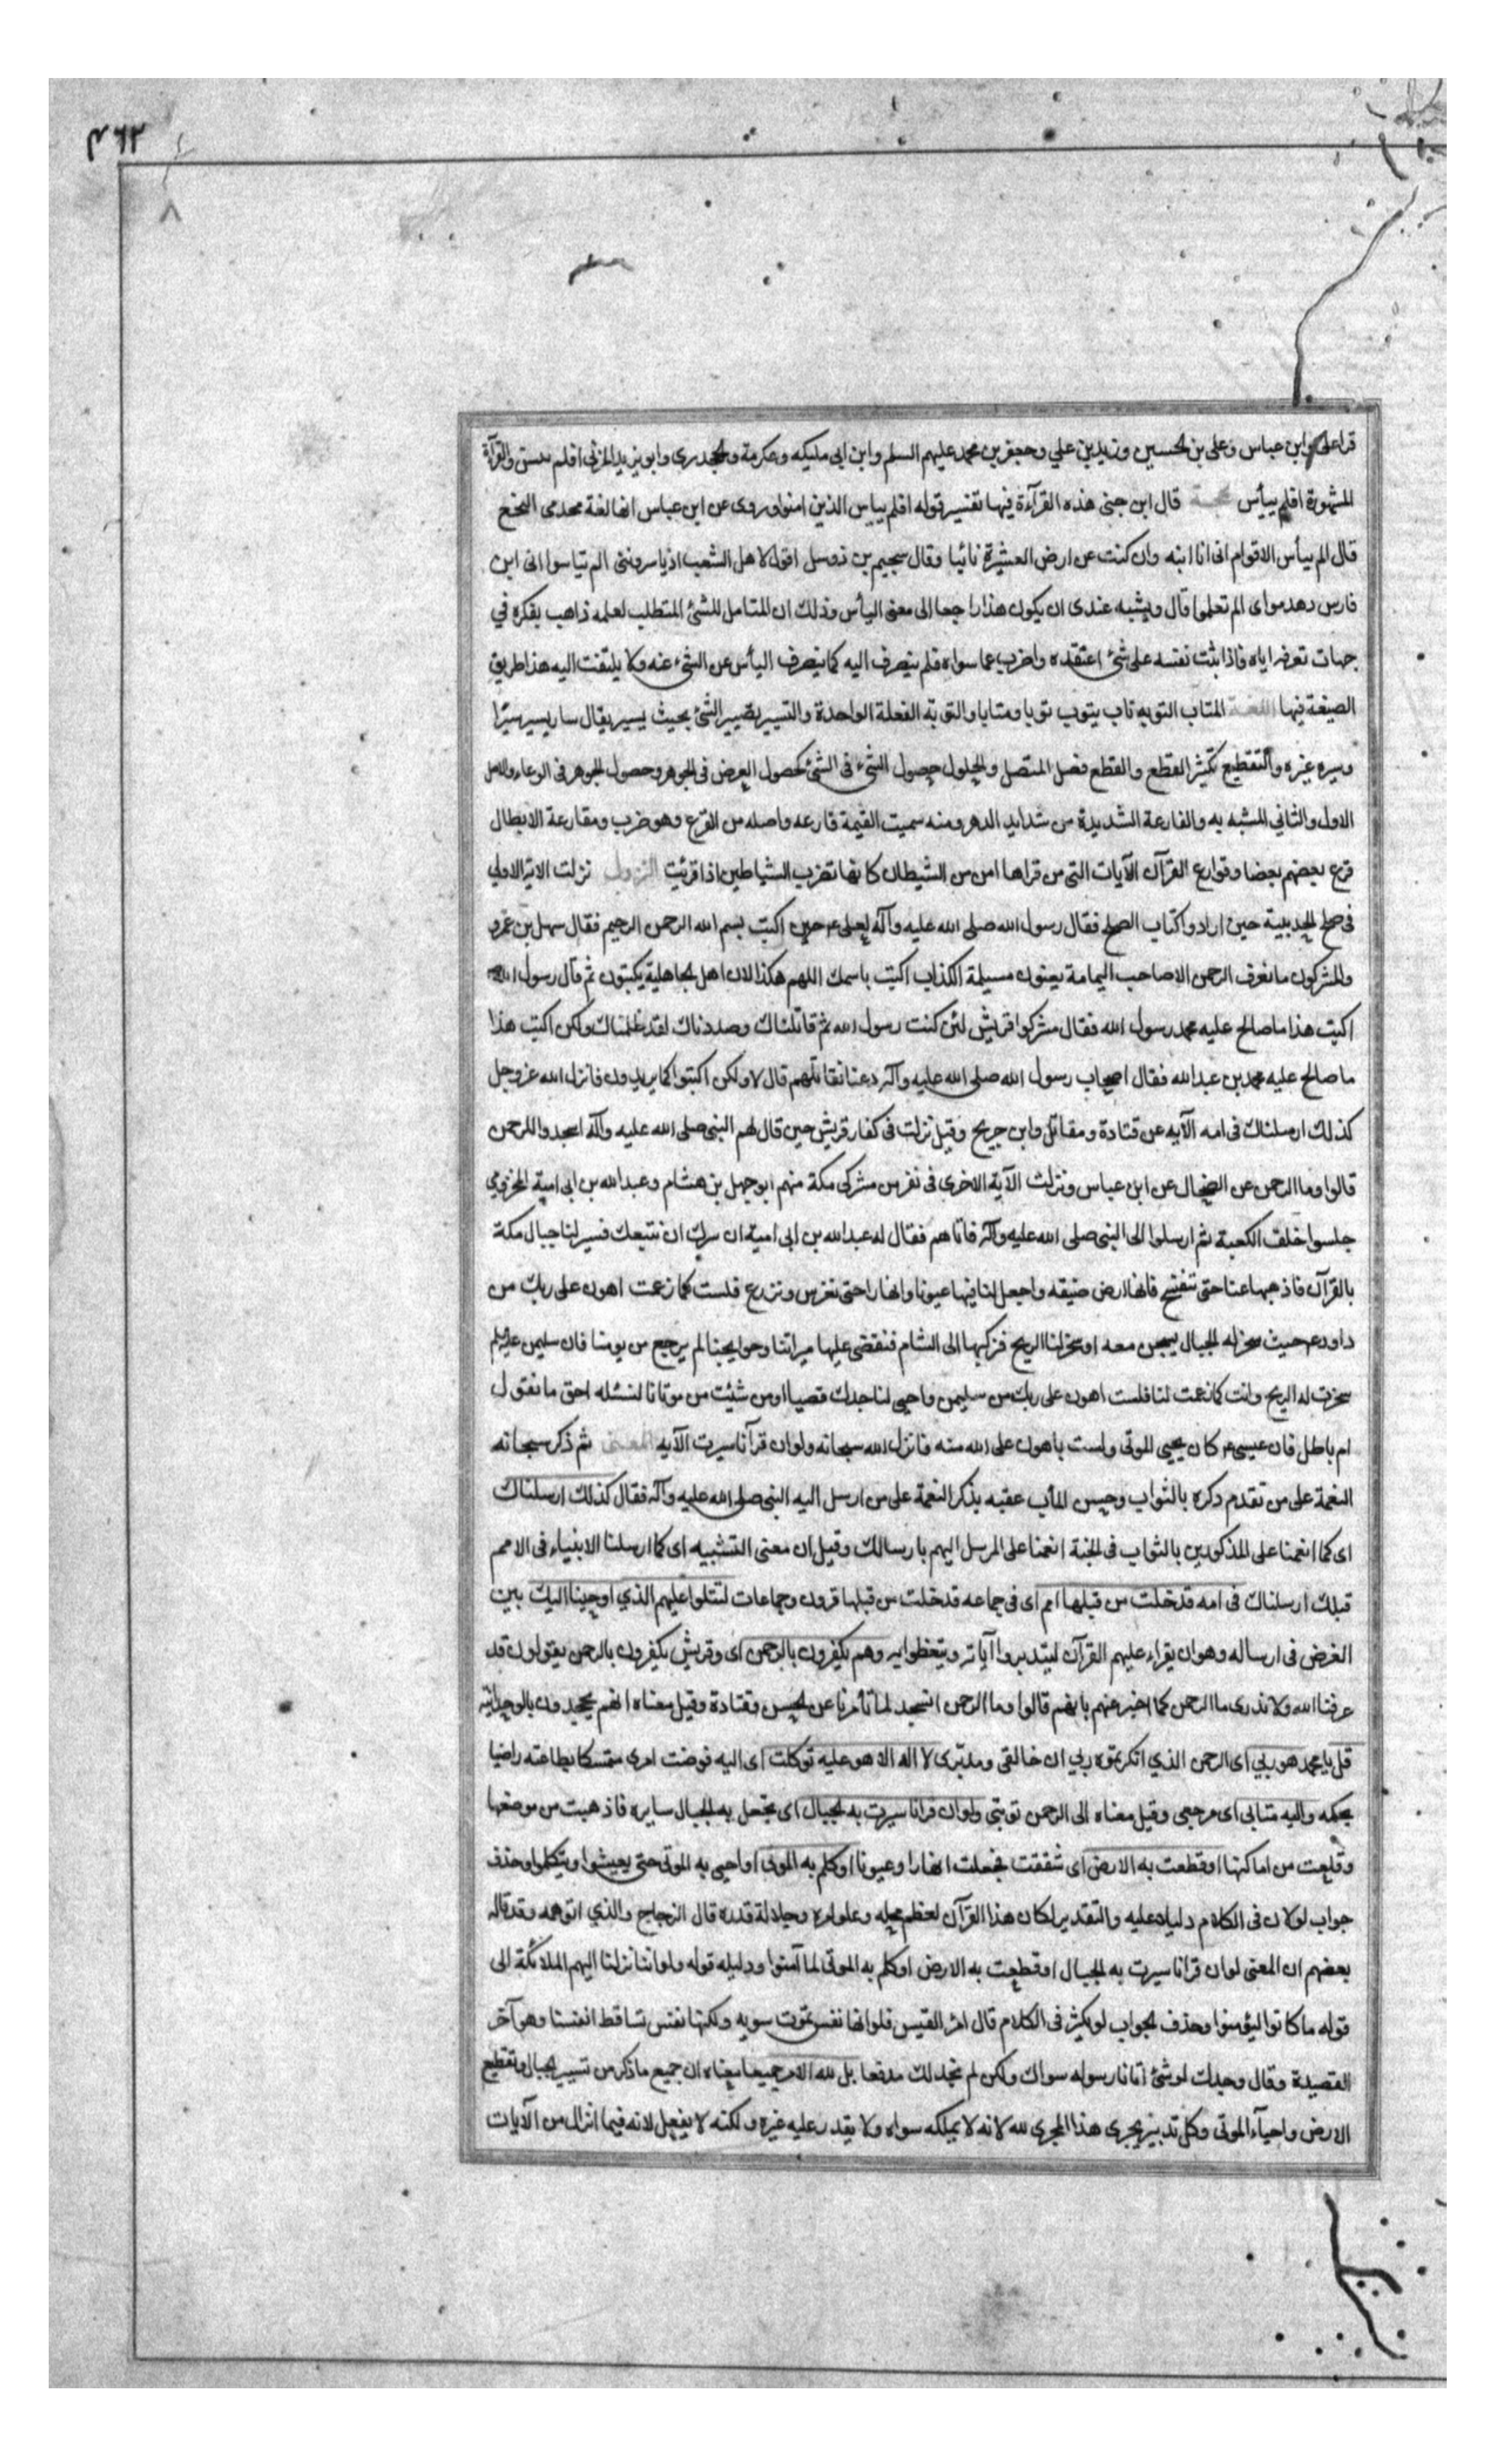 قرا علی و ابن عباس و علی بن الحسین و زید بن علي و جعفر بن محمد علیهم السلم و ابن ابی ملیکه و عکرمة و الجحدری و ابو یزید المزنی افلم یتبین والقرآءة
المشهورة افلم ییأس الحجة قال ابن جنی هذه القرآءة فیها تفسیر قوله افلم ییاس الذین امنوا و روی عن ابن عباس انها لغة النخع
قال الم ییأس الاقوام انی انا ابنه وان کنت عن ارض العشیرة نائیا وقال سحیم بن وثیل اقول لاهل الشعب اذ یاسروننی الم تیاسوا انی ابن
فارس زهدم ای الم تعلموا قال ویشبه عندی ان یکون هذا راجعا الی معنی الیأس وذلك ان المتامل للشئ المتطلب لعلمه ذاهب بفکره في
جهات تعرفه ایاه فاذا ثبت نفسه علی شئ اعتقده واضرب عما سواه فلم ینصرف الیه کما ینصرف الیأس عن الشیء عنه ولا یلتفت الیه هذا طریق
الصیغة فیها اللغة المتاب التوبه تاب یتوب توبا ومتابا والتوبة الفعلة الواحدة والتسییر تصییر الشئ بحیث یسیر یقال سار یسیر سیرا
وسیره غیره والتقطیع تکثیر القطع والقطع فصل المتصل والحلول حصول الشیء فی الشئ کحصول العرض فی الجوهر وحصول الجوهر فی الوعاء والاصل
الاول والثاني المشبه به والقارعة الشدیدة من شداید الدهر ومنه سمیت القیمة قارعه واصله من القرع وهو ضرب ومقارعة الابطال
قرع بعضهم بعضا وقوارع القرآن الآیات التی من قراها امن من الشیطان کانها تضرب الشیاطین اذا قرئت النزول نزلت الایة الاولی
فی صلح الحدیبیة حین ارادوا کتاب الصلح فقال رسول الله صلی الله علیه وآله لعلی ع حین اکتب بسم الله الرحمن الرحیم فقال سهل بن عمرو
والمشرکون ما نعرف الرحمن الا صاحب الیمامة یعنون مسیلمة الکذاب اکتب باسمك اللهم هکذا لان اهل الجاهلیة یکتبون ثم قال رسول الله
اکتب هذا ما صالح علیه محمد رسول الله فقال مشرکوا قریش لئن کنت رسول الله ثم قاتلناك وصددناك لقد ظلمناك ولکن اکتب هذا
ما صالح علیه محمد بن عبد الله فقال اصحاب رسول الله صلی الله علیه وآله دعنا نقاتلهم قال لا ولکن اکتبوا کما یریدون فانزل الله عز وجل
کذلك ارسلناك فی امه الآیه عن قتادة ومقاتل وابن جریج وقیل نزلت فی کفار قریش حین قال لهم النبی صلی الله علیه وآله اسجدوا للرحمن
قالوا وما الرحمن عن الضحاك عن ابن عباس ونزلت الآیة الاخری فی نفر من مشرکی مکة منهم ابو جهل بن هشام وعبد الله بن ابی امیة المخزومي
جلسوا خلف الکعبة ثم ارسلوا الی النبی صلی الله علیه وآله فاتاهم فقال له عبد الله بن ابی امیة ان سرك ان نتبعك فسیر لنا جبال مکة
بالقرآن فاذهبها عنا حتی تنفسح فانها ارض ضیقه واجعل لنا فیها عیونا وانهارا حتی نغرس ونزرع فلست کما زعمت اهون علی ربك من
داود ع حیث سخر له الجبال یسبحن معه او سخر لنا الریح فنرکبها الی الشام فنقضی علیها میراتنا وحوایجنا ثم یرجع من یومنا فان سلیمن علیه السلم
سخرت له الریح وانت کما زعمت لنا فلست اهون علی ربك من سلیمن واحیی لنا جدك قصیا او من شئت من موتانا لنسئله احق ما تقول
ام باطل فان عیسی ع کان یحیی الموتی ولست باهون علی الله منه فانزل الله سبحانه ولو ان قرآنا سیرت الآیه المعنی ثم ذکر سبحانه
النعمة علی من تقدم ذکره بالثواب وحسن المآب عقبه بذکر النعمة علی من ارسل الیه النبی صلی الله علیه وآله فقال کذلك ارسلناك
ای کما انعمنا علی المذکورین بالثواب فی الجنة انعمنا علی المرسل الیهم بارسالك وقیل ان معنی التشبیه ای کما ارسلنا الانبیاء فی الامم
قبلك ارسلناك فی امه قد خلت من قبلها امم ای فی جماعه قد خلت من قبلها قرون وجماعات لتتلوا علیهم الذي اوحینا الیك بین
الغرض فی ارساله وهو ان یقراء علیهم القرآن لیتدبروا آیاته ویتعظوا به وهم یکفرون بالرحمن ای وقریش یکفرون بالرحمن یقولون قد
عرفنا الله ولا ندری ما الرحمن کما اخبر عنهم بانهم قالوا وما الرحمن انسجد لما تأمرنا عن الحسن وقتادة وقیل معناه انهم یجحدون بالوحدانیة
قل یا محمد هو ربي ای الرحمن الذي انکرتموه ربي ای خالقی ومدبری لا اله الا هو علیه توکلت ای الیه فوضت امری متمسکا بطاعته راضیا
بحکمه والیه متابی ای مرجعی وقیل معناه الی الرحمن توبتی ولو ان قرانا سیرت به الجبال ای تجعل به الجبال سایره فاذهبت من موضعها
وقلعت من اماکنها او قطعت به الارض ای شققت فجعلت انهارا وعیونا او کلم به الموتی او احیی به الموتی حتی یعیشوا ویتکلموا وحذف
جواب لو لان فی الکلام دلیلا علیه والتقدیر لکان هذا القرآن لعظم محله وعلو امره وجلالة قدره قال الزجاج والذي اتوهمه وقد قاله
بعضهم ان المعنی لو ان قرانا سیرت به الجبال او قطعت به الارض او کلم به الموتی لما آمنوا ودلیله قوله ولو اننا نزلنا الیهم الملائکة الی
قوله ما کانوا لیؤمنوا وحذف الجواب لو یکثر فی الکلام قال امرؤ القیس فلو انها نفس تموت سویه ولکنها نفس تساقط انفسا وهو آخر
القصیدة وقال وجدك لو شئ اتانا رسوله سواك ولکن لم نجد لك مدفعا بل لله الامر جمیعا معناه ان جمیع ما ذکر من تسییر الجبال وتقطیع
الارض واحیآء الموتی وکل تدبیر یجری هذا المجری لله لانه لا یملکه سواه ولا یقدر علیه غیره ولکنه لا یفعل لانه فیما انزل من الآیات